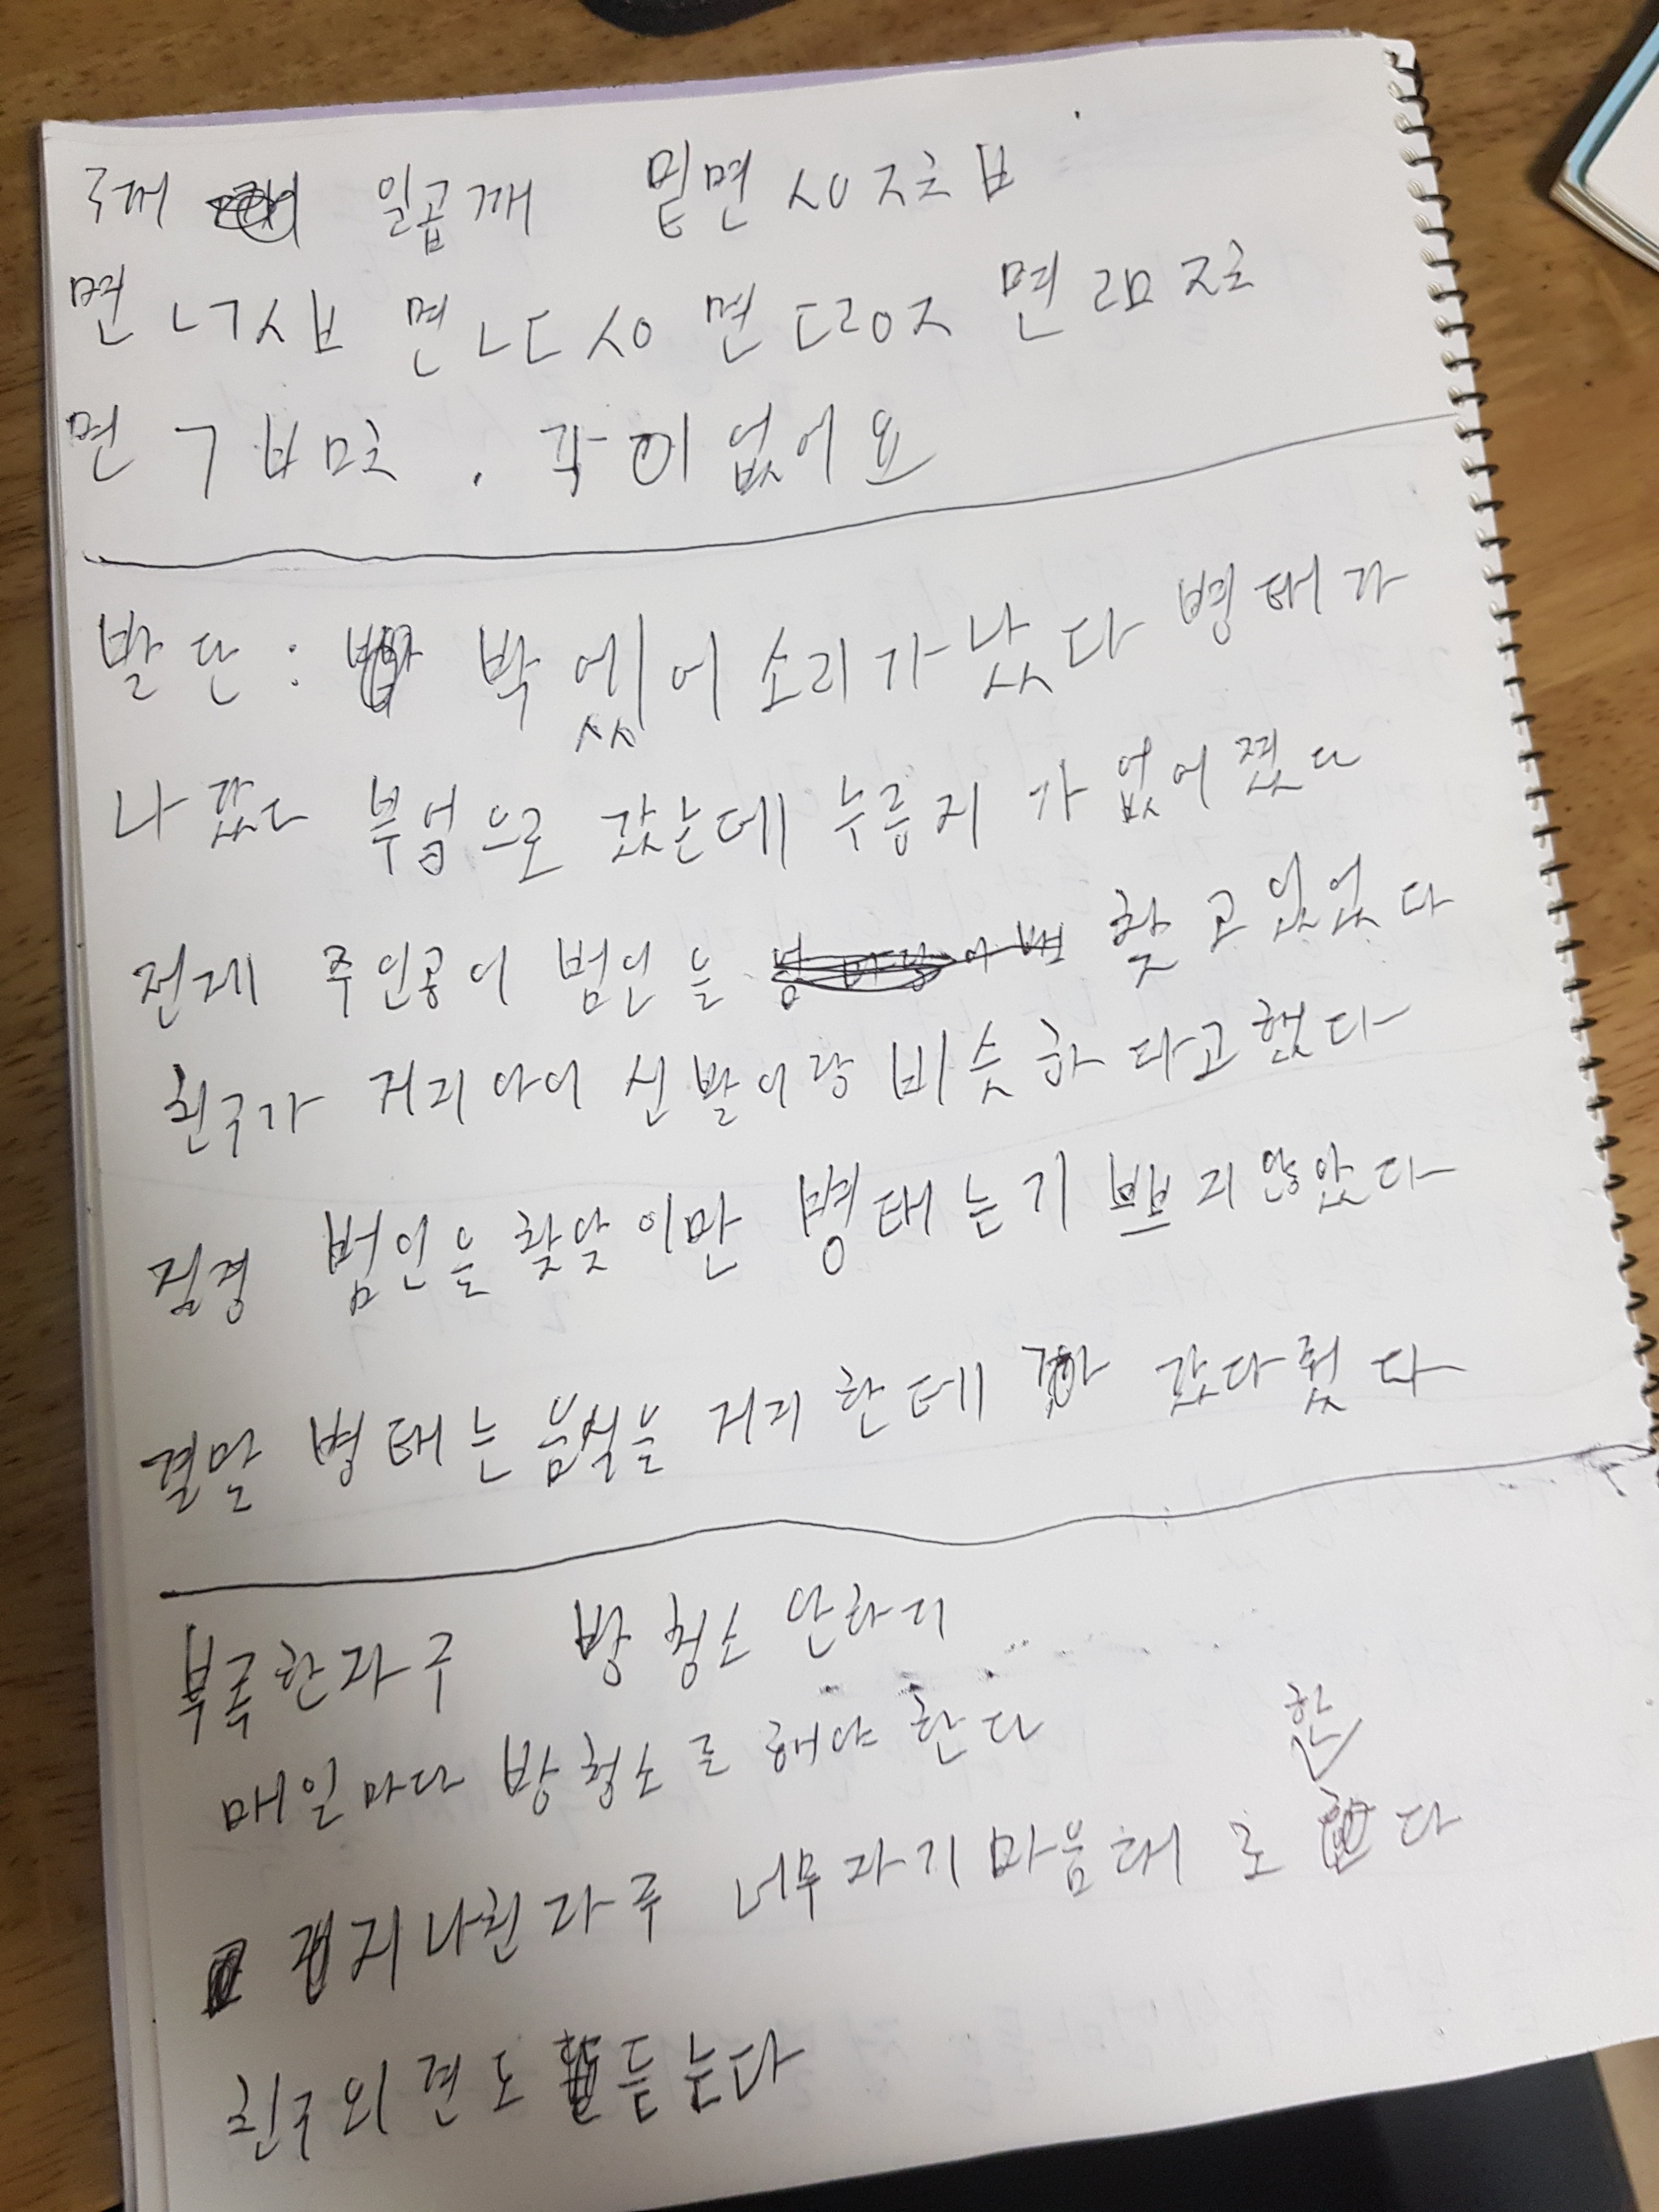 5개 일곱개 밑면 ㅅㅇㅈㅊㅂ
면 ㄴㄱㅅㅂ 면 ㄴㄷㅅㅇ 면 ㄷㄹㅇㅈ 면 ㄹㅁㅈㅊ
면 ㄱㅂㅁㅊ . 각이 없어요
발단 : 박에서 소리가 났다 병태가
나갔다 부엌으로 갔는데 누릉지가 없어졌다
전개 주인공이 범인을 찾고 있었다
친구가 거지 아이 신발이랑 비슷하다고 했다
절경 범인을 찾았이만 병태는 기쁘지 않았다
결말 병태는 음식을 거지 한데 갔다줬다
부족한 자구 방 청소 안하기
매일마다 방 청소를 해야 한다
지나친 자구 너무 자기 마음대로 한다
친구 의견도 듣는다